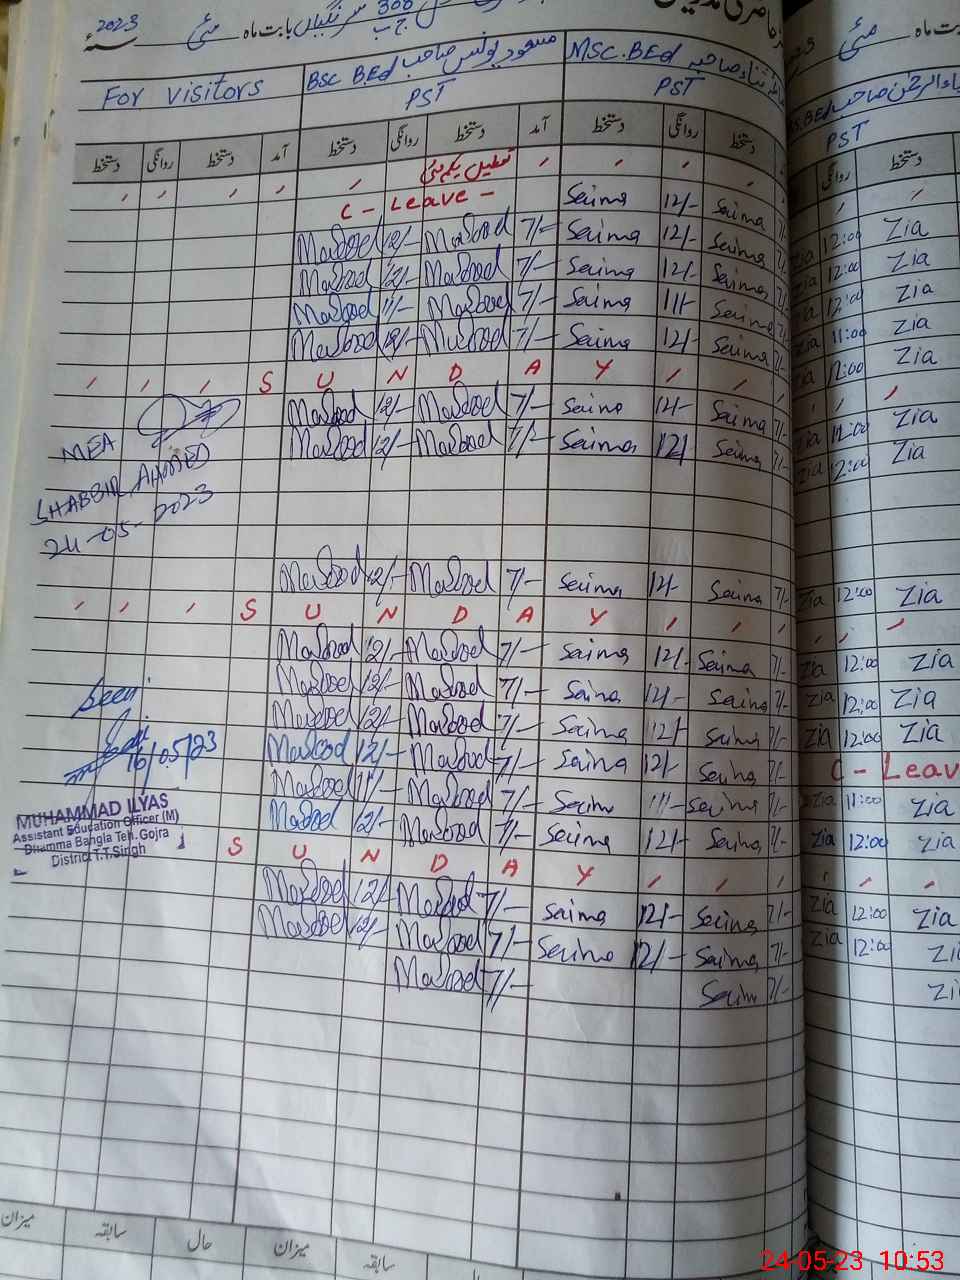 2023 مئی بابت ماہ
For visitors
BSC. BEd مسعود یونس صاحب
PST
MSC. BEd
PST
PST
دستخط روانگی دستخط آمد دستخط روانگی دستخط آمد دستخط روانگی دستخط
روانگی دستخط
تعطیل یکم مئی
C - Leave - Saima 12/- Saima 7/- Zia 12:00 Zia
Masood 12/- Masood 7/- Saima 12/- Saima 7/- Zia 12:00 Zia
Masood 12/- Masood 7/- Saima 12/- Saima 7/- Zia 12:00 Zia
Masood 11/- Masood 7/- Saima 11/- Saima 7/- Zia 11:00 Zia
Masood 12/- Masood 7/- Saima 12/- Saima 7/- Zia 12:00 Zia
S U N D A Y
Masood 12/- Masood 7/- Saima 12/- Saima 7/- Zia 12:00 Zia
Masood 12/- Masood 7/- Saima 12/- Saima 7/- Zia 12:00 Zia
MEA
SHABBIR AHMED
24-05-2023
Masood 12/- Masood 7/- Saima 12/- Saima 7/- Zia 12:00 Zia
S U N D A Y
Masood 12/- Masood 7/- Saima 12/- Saima 7/- Zia 12:00 Zia
Masood 12/- Masood 7/- Saima 12/- Saima 7/- Zia 12:00 Zia
Masood 12/- Masood 7/- Saima 12/- Saima 7/- Zia 12:00 Zia
Masood 12/- Masood 7/- Saima 12/- Saima 7/- C - Leav
Masood 11/- Masood 7/- Saima 11/- Saima 7/- Zia 11:00 Zia
Masood 12/- Masood 7/- Saima 12/- Saima 7/- Zia 12:00 Zia
Seen
16/05/23
MUHAMMAD ILYAS
Assistant Education Officer (M)
Dhamma Bangla Teh. Gojra
District T.T.Singh
S U N D A Y
Masood 12/- Masood 7/- Saima 12/- Saima 7/- Zia 12:00 Zia
Masood 12/- Masood 7/- Saima 12/- Saima 7/- Zia 12:00 Zi
Masood 7/- Saima 7/- Zi
میزان سابقہ حال میزان سابقہ حال
24-05-23 10:53